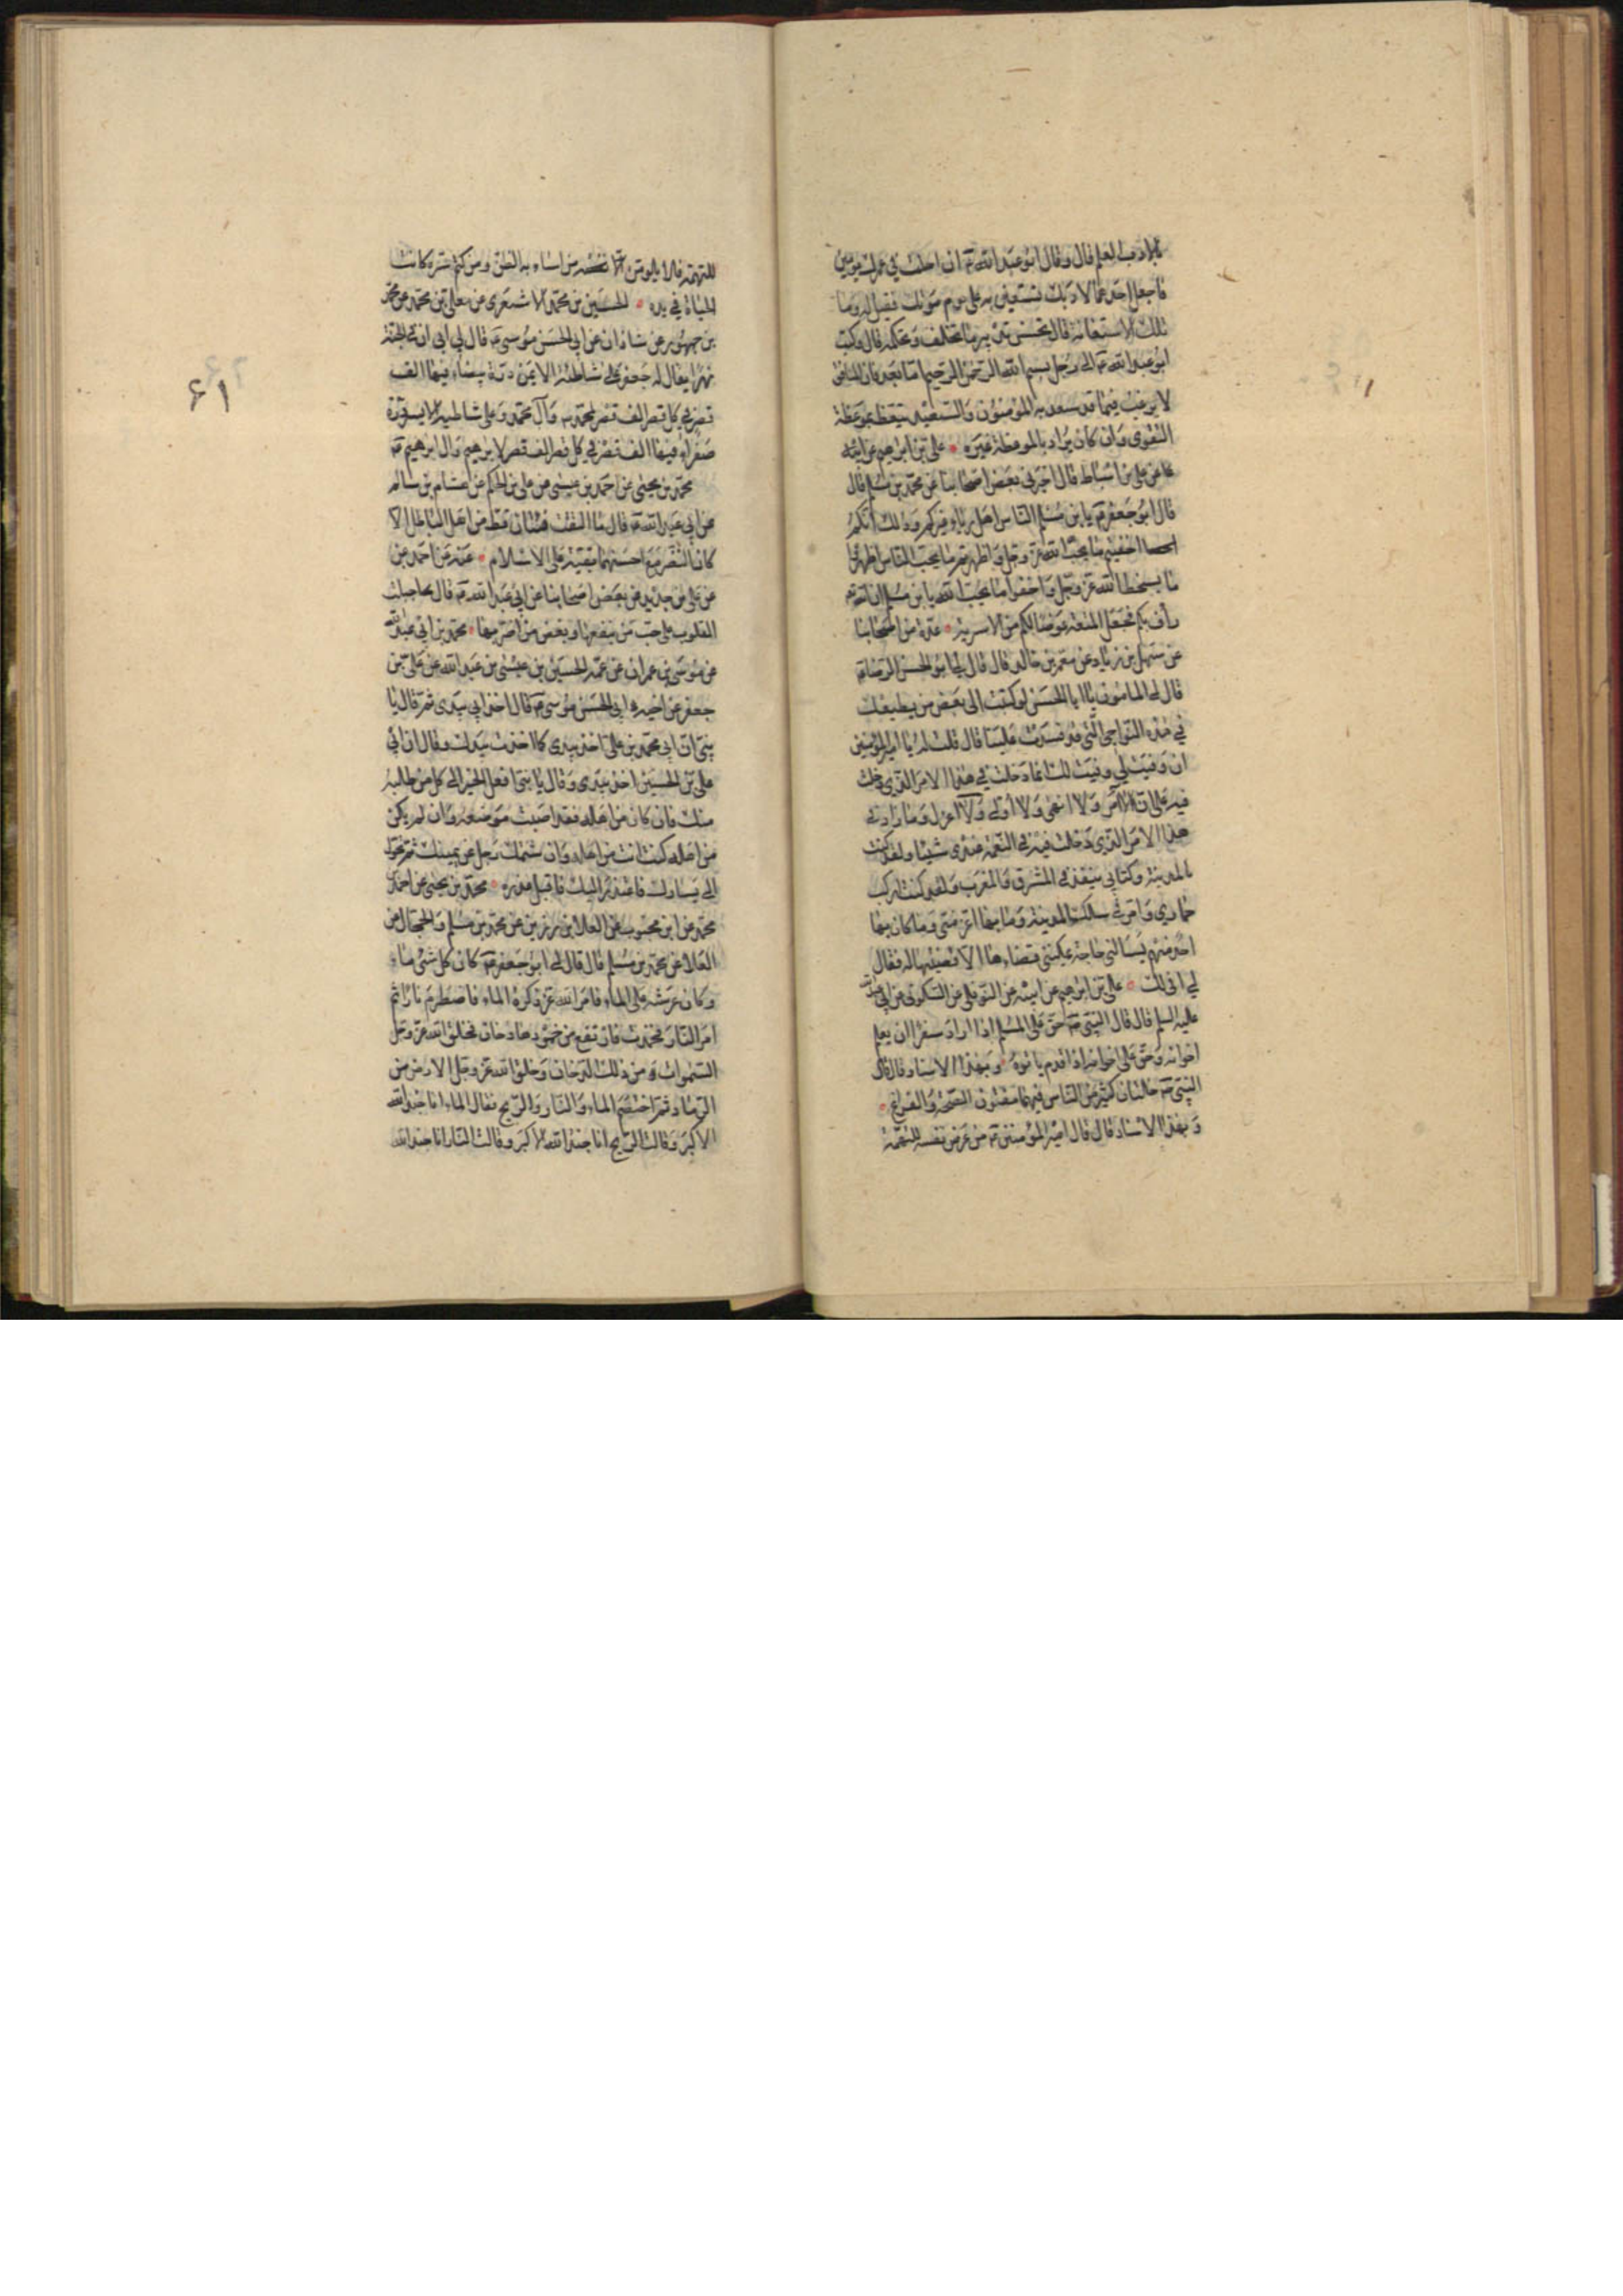 بالادب العلم قال وقال ابو عبد الله ع ان اجلت في عمرك يومين
فاجعل احدهما لادبك لتستعين به على يوم موتك فقيل له وما
تلك الاستعانة قال تحسن تدبير ما تخلف وتحكمه قال وكتب
ابو عبد الله ع الى رجل بسم الله الرحمن الرحيم اما بعد فان المنافق
لا يرغب فيما قد سعد به المؤمنون والسعيد يتعظ بموعظة
التقوى وان كان يراد بالموعظة غيره علي بن ابراهيم عن ابيه
عن علي بن اسباط قال اخبرني بعض اصحابنا عن محمد بن مسلم قال
قال ابو جعفر ع يا بن مسلم الناس اهل رياء غيركم وذلك انكم
اخفيتم ما يحب الله عز وجل واظهرتم ما يحب الناس والناس اظهروا
ما يسخط الله عز وجل واخفوا ما يحب الله يا بن مسلم ان الله
رأف بكم فجعل المتعة عوضا لكم من الاسربة عدة من اصحابنا
عن سهل بن زياد عن معمر بن خلاد قال قال لي ابو الحسن الرضا ع
قال لي المامون يا ابا الحسن لو كتبت الى بعض من يطيعك
في هذه النواحي التي قد فسدت علينا قال قلت له يا امير المؤمنين
ان وفيت لي وفيت لك انما دخلت في هذا الامر الذي دخلت
فيه على ان لا آمر ولا انهى ولا اولي ولا اعزل وما زادني
هذا الامر الذي دخلت فيه في النعمة عندي شيئا ولقد كنت
بالمدينة وكتابي ينفذ في المشرق والمغرب ولقد كنت اركب
حماري وامر في سكك المدينة وما بها اعز مني وما كان بها
احد منهم يسالني حاجة يمكنني قضاءها الا قضيتها له فقال
لي افي لك علي بن ابراهيم عن ابيه عن النوفلي عن السكوني عن ابي عبد الله
عليه السلم قال قال النبي ص حق على المسلم اذا اراد سفرا ان يعلم
اخوانه وحق على اخوانه اذا قدم ان ياتوه وبهذا الاسناد قال قال
النبي ص خلتان كثير من الناس فيهما مفتون الصحة والفراغ
وبهذا الاسناد قال قال امير المؤمنين ع من عرض نفسه للتهمة
للتهمة فلا يلومن من اساء به الظن ومن كتم سره كانت
الخيرة في يده الحسين بن محمد الاشعري عن معلى بن محمد عن محمد
بن جمهور عن شاذان عن ابي الحسن موسى ع قال لي ابي ان في الجنة
نهرا يقال له جعفر على شاطئه الايمن درة بيضاء فيها الف
قصر في كل قصر الف قصر لمحمد وآل محمد وعلى شاطئه الايسر درة
صفراء فيها الف قصر في كل قصر الف قصر لابرهيم وال ابرهيم ع
محمد بن يحيى عن احمد بن عيسى عن علي بن الحكم عن هشام بن سالم
عن ابي عبد الله ع قال ما التقت فئتان قط من اهل الباطل الا
كان النصر مع احسنهما بقية على الاسلام عنه عن احمد عن
عن علي بن حديد عن بعض اصحابنا عن ابي عبد الله ع قال جبلت
القلوب على حب من ينفعها وبغض من اضر بها محمد بن ابي عبد الله
عن موسى بن عمران عن عمه الحسين بن عيسى بن عبد الله عن علي بن
جعفر عن اخيه ابي الحسن موسى ع قال اخذ ابي بيدي ثم قال يا
بني ان ابي محمد بن علي اخذ بيدي كما اخذت بيدك وقال ان ابي
علي بن الحسين اخذ بيدي وقال يا بني افعل الخير الى كل من طلبه
منك فان كان من اهله فقد اصبت موضعه وان لم يكن
من اهله كنت انت من اهله وان شتمك رجل عن يمينك ثم تحول
الى يسارك فاعتذر اليك فاقبل عذره محمد بن يحيى عن احمد بن
محمد عن ابن محبوب عن العلا بن رزين عن محمد بن مسلم والحجال عن
العلا عن محمد بن مسلم قال قال لي ابو جعفر ع كان كل شئ ماء
وكان عرشه على الماء فامر الله عز ذكره الماء فاضطرم نارا ثم
امر النار فخمدت فارتفع من خمودها دخان فخلق الله عز وجل
السموات من ذلك الدخان وخلق الله عز وجل الارض من
الرماد ثم اختصم الماء والنار والريح فقال الماء انا جند الله
الاكبر وقالت الريح انا جند الله الاكبر وقالت النار انا جند الله
۶۱